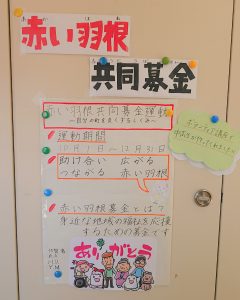 赤い羽根
共同募金
赤い羽根共同募金運動
～自分の町を良くするしくみ～
運動期間
10月1日～12月31日
助け合い 広がる
つながる 赤い羽根
赤い羽根募金とは?
身近な地域の福祉を応援
するための募金です
ありがとう
ボランティア講座で